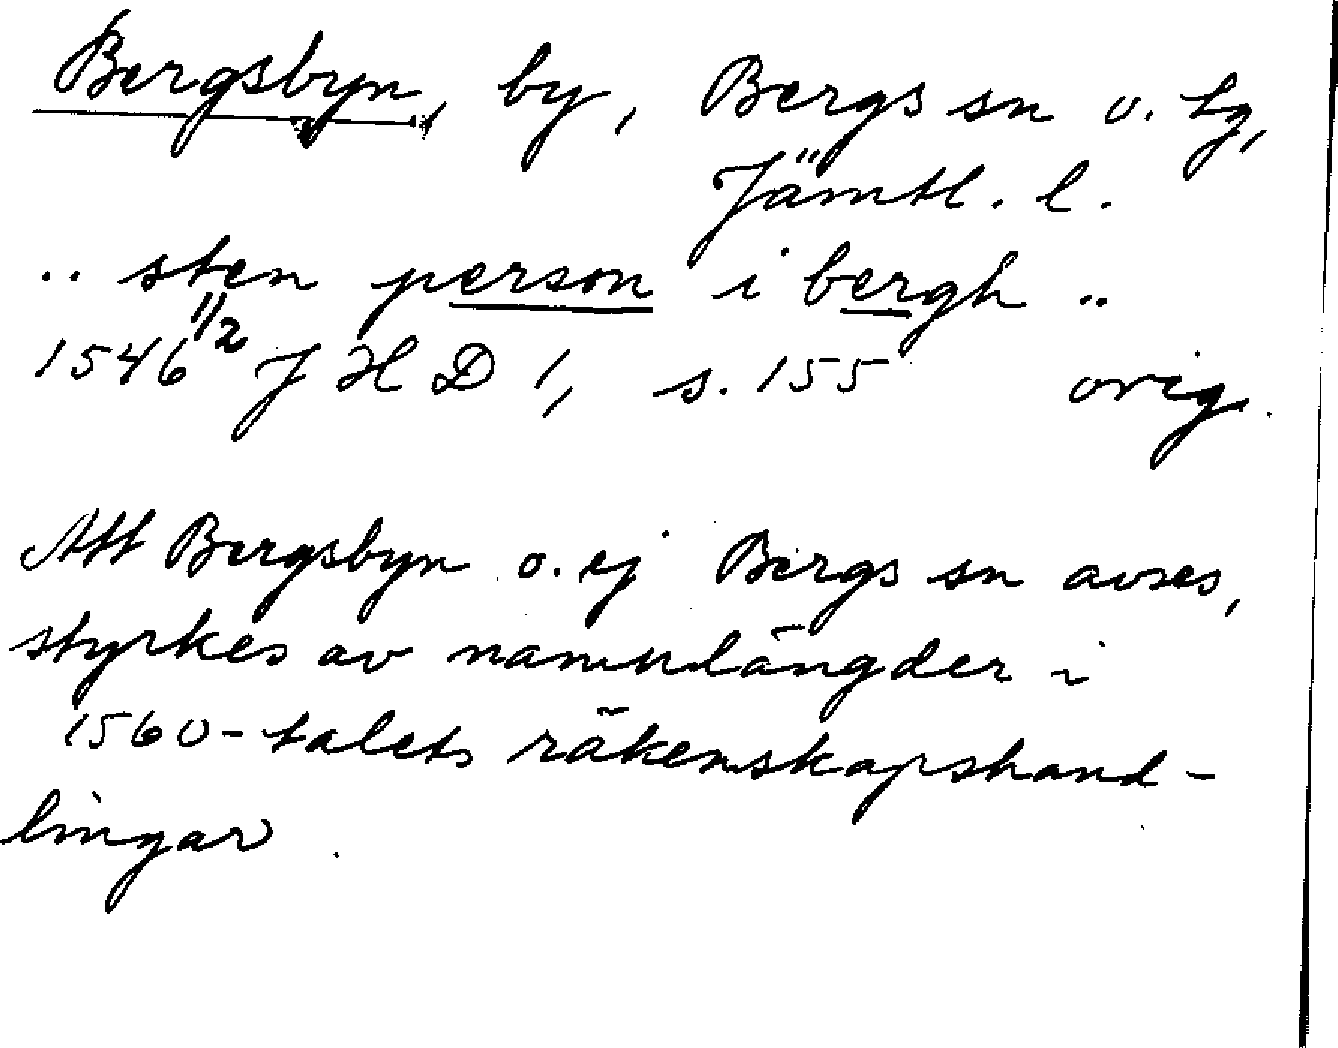 Bergsbyn, by, Bergs sn o. tg,
Jämtl. l.
.. sten person i bergh ..
1546 1/2 J H D 1, s. 155 orig.
Att Bergsbyn o. ej Bergs sn avses,
styrkes av namnlängder i
1560-talets räkenskapshand-
lingar.